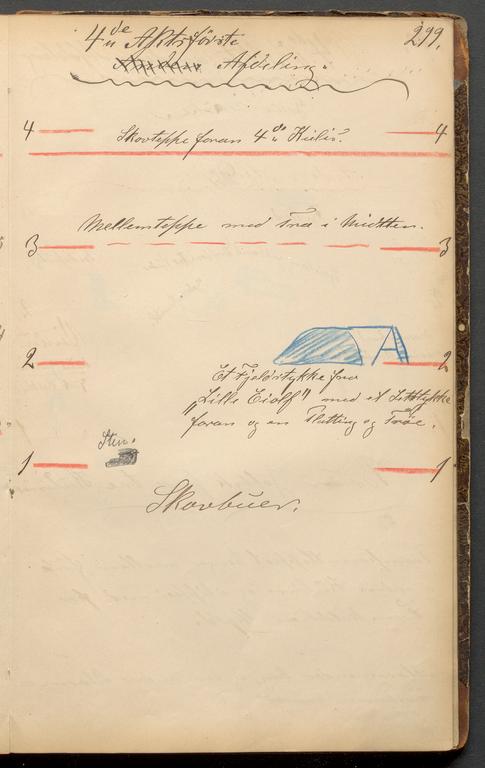 299.
4de Akts første
Afdeling.
4 Skovteppe foran 4de Kulis. 4
3 Mellemteppe med Træ i Midtten. 3
2 2
Et Fjeldstykke fra
"Lille Eiolf" med et Settstykke
foran og en Slutting og Trøe.
Sten.
1 1
Skovbuer.